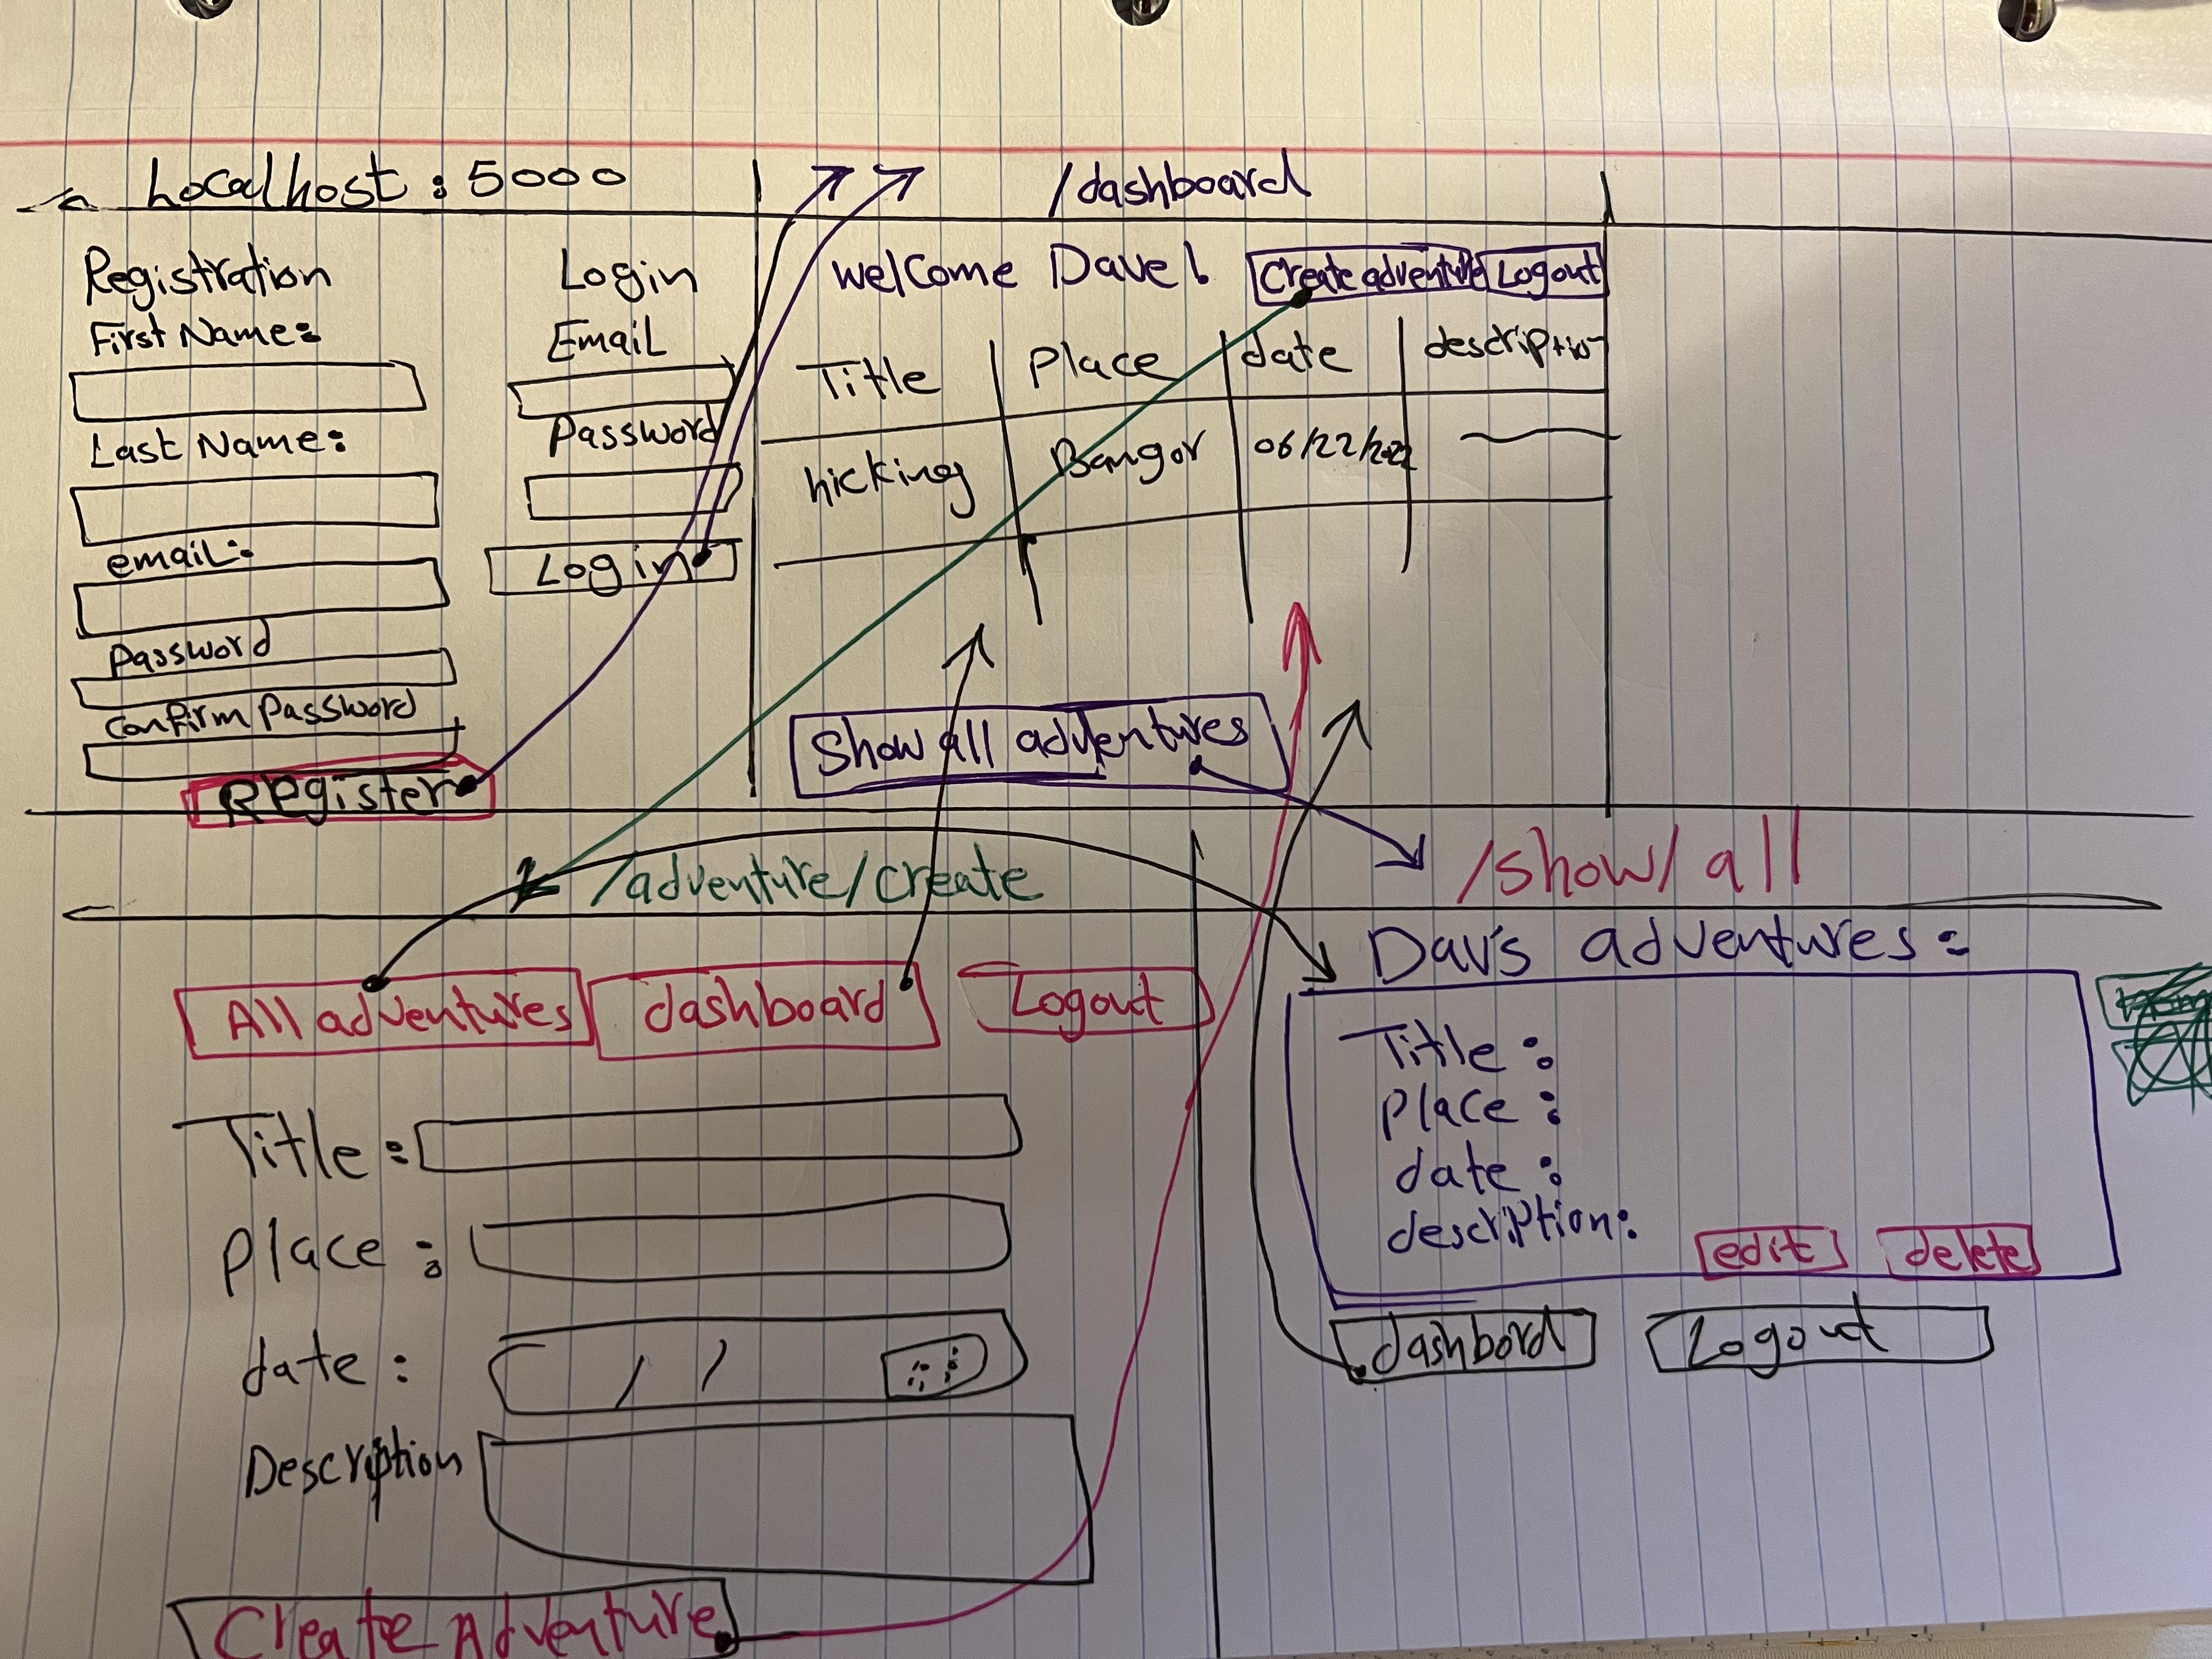 Localhost : 5000
Registration
First Name:
Last Name:
email:
Password
Confirm Password
Register
Login
Email
Password
Login
/dashboard
welcome Dave!
Create adventure
Logout
Title Place date description
hicking Bangor 06/22/2022
Show all adventures
/adventure/create
All adventures dashboard Logout
Title :
place :
date : / /
Description
Create Adventure
/show/all
Dav's adventures :
Title :
place :
date :
description:
edit delete
dashbord Logout